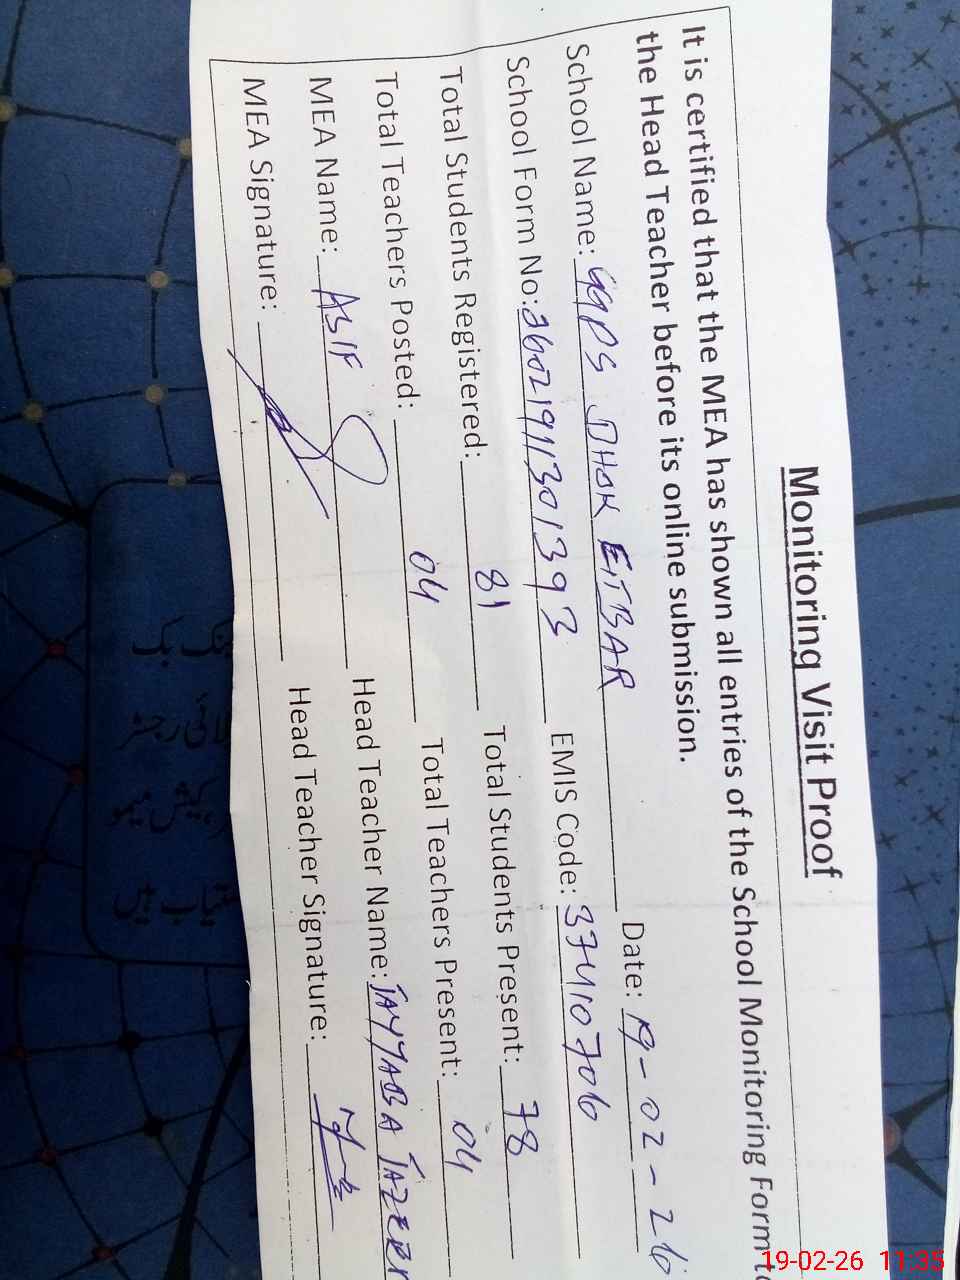 Monitoring Visit Proof
It is certified that the MEA has shown all entries of the School Monitoring Form to
the Head Teacher before its online submission.
School Name: GGPS DHOK EITBAR Date: 19-02-26
School Form No: 26021911301393 EMIS Code: 37410706
Total Students Registered: 81 Total Students Present: 78
Total Teachers Posted: 04 Total Teachers Present: 04
MEA Name: ASIF Head Teacher Name: TAYYABA
MEA Signature: Head Teacher Signature:
19-02-26 11:35